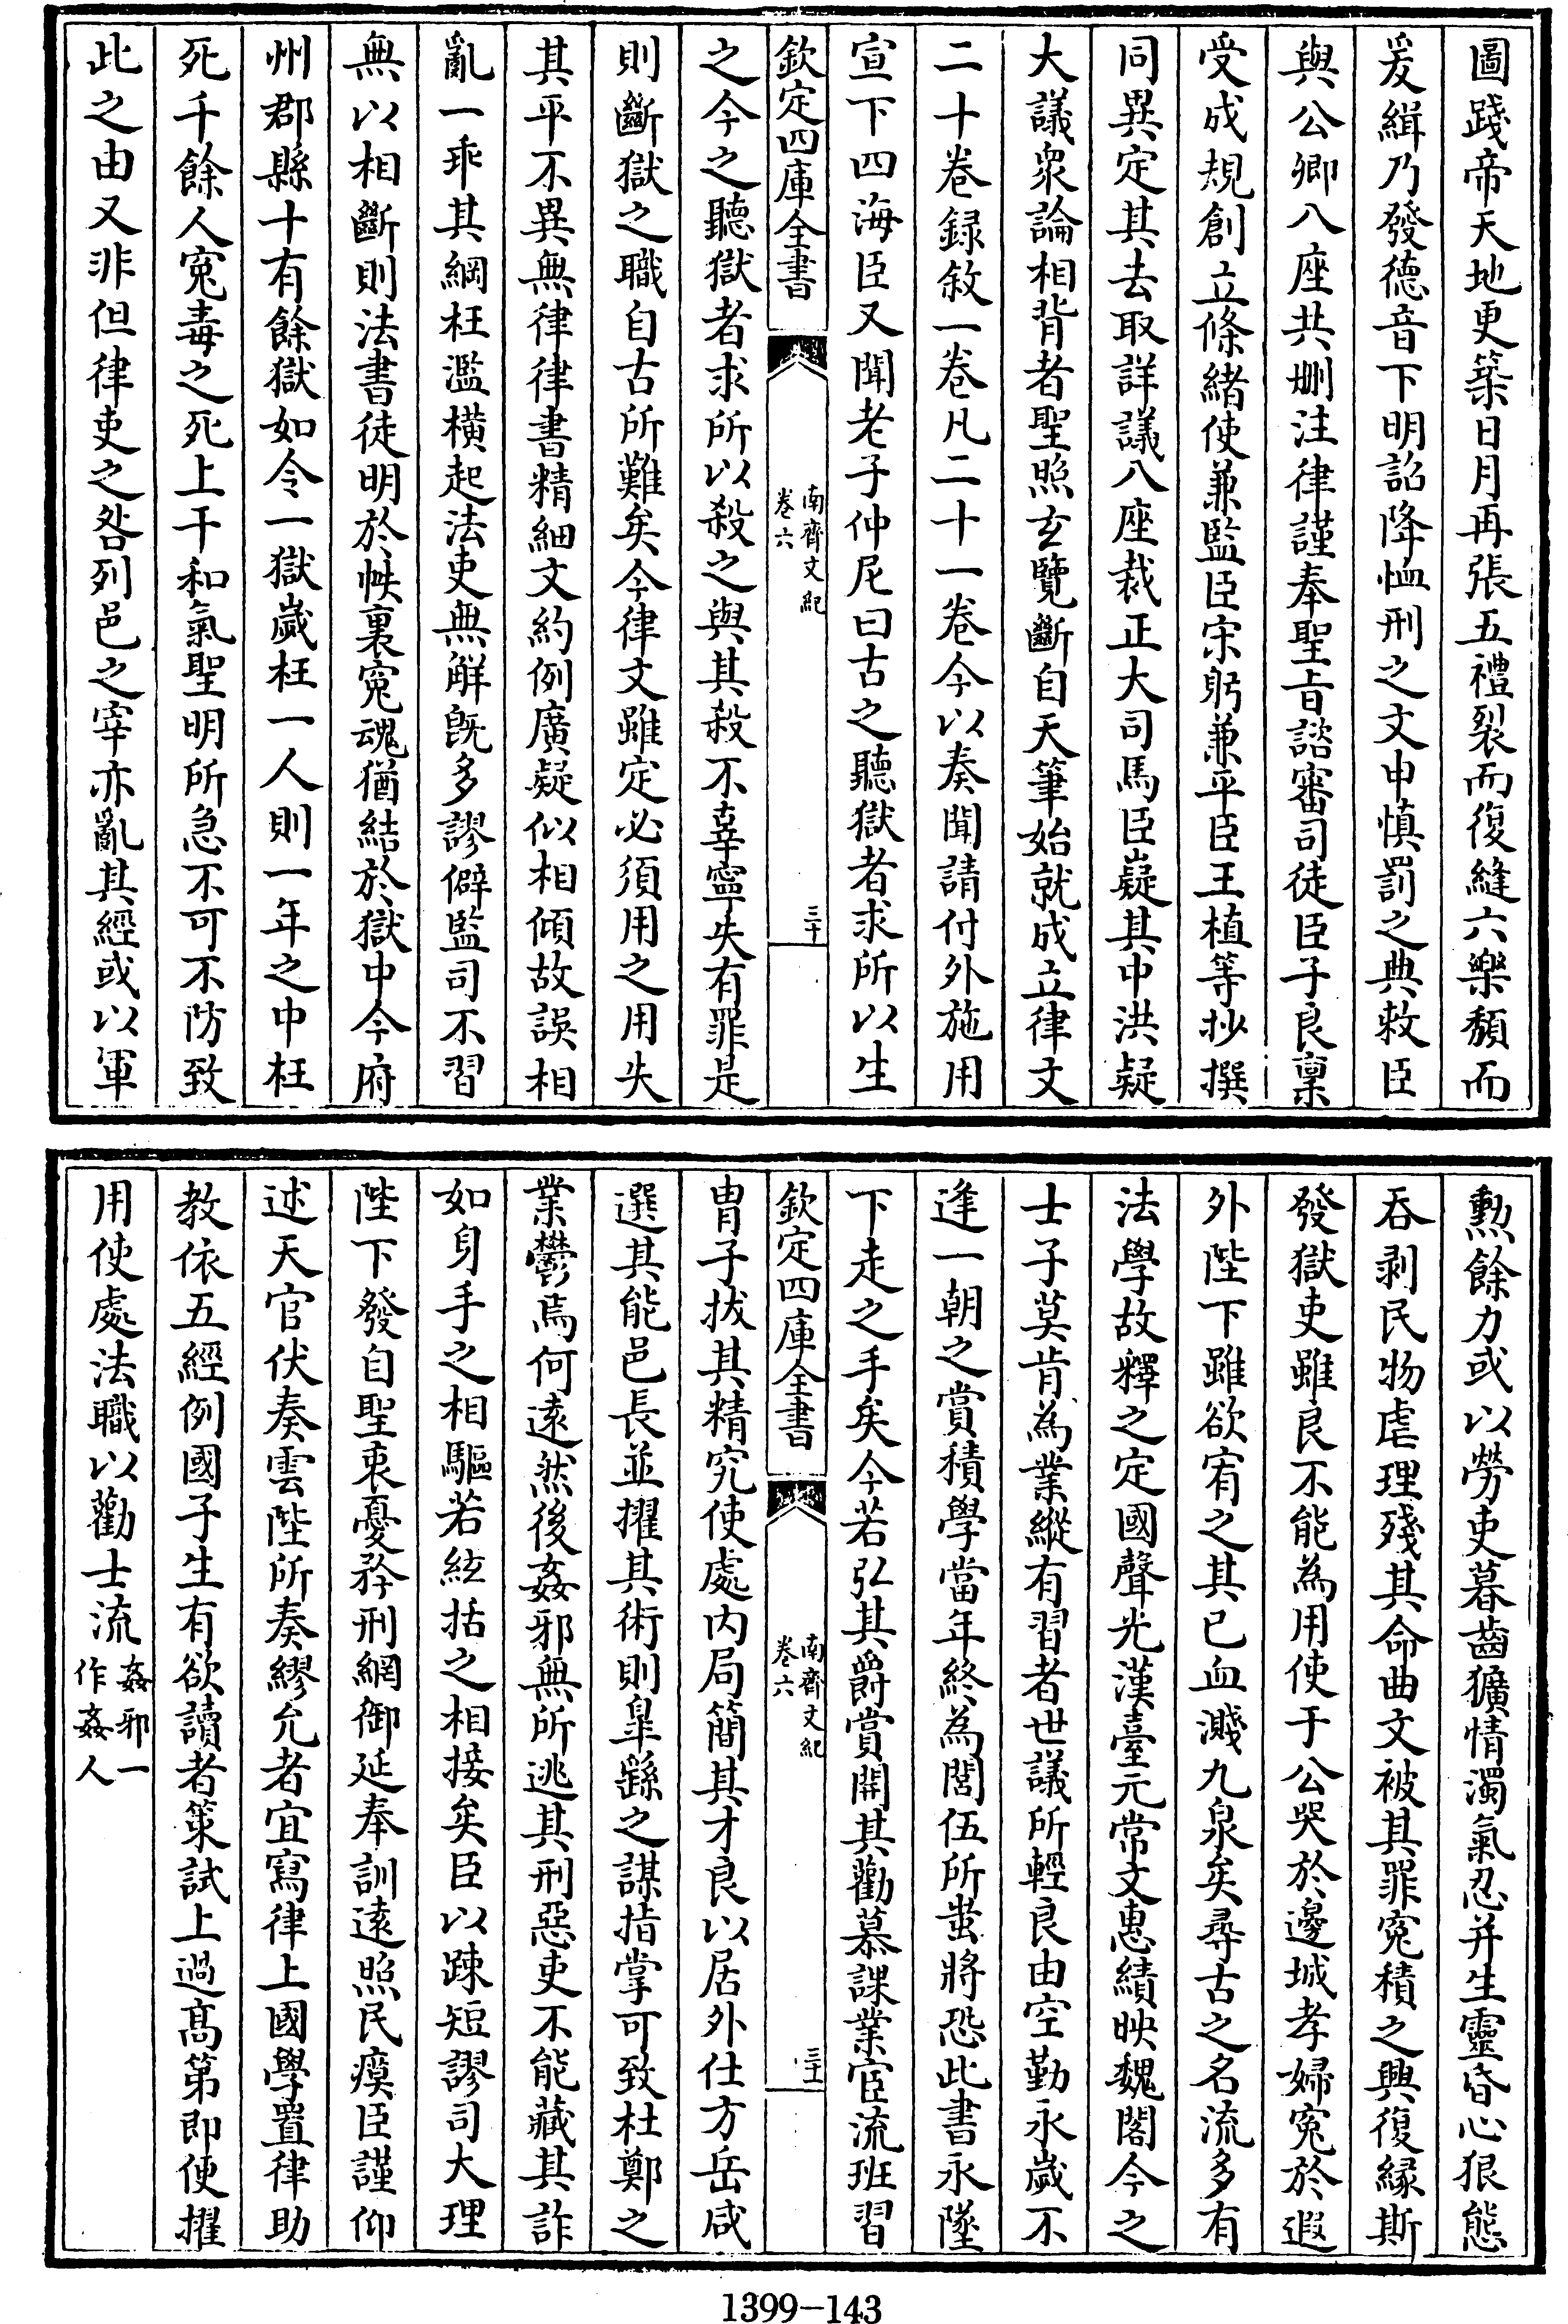 圖踐帝天地更築日月再張五禮裂而復縫六樂頽而
爰緝乃發德音下明詔降恤刑之文申慎罰之典敕臣
與公卿八座共刪注律謹奉聖旨諮審司徒臣子良稟
受成規創立條緒使兼監臣宋躬兼平臣王植等抄撰
同異定其去取詳議八座裁正大司馬臣嶷其中洪疑
大議衆論相背者聖照玄覽斷自天筆始就成立律文
二十卷録敘一卷凡二十一卷今以奏聞請付外施用
宣下四海臣又聞老子仲尼曰古之聽獄者求所以生
欽定四庫全書
南齊文紀
卷六
三十
之今之聽獄者求所以殺之與其殺不辜寧失有罪是
則斷獄之職自古所難矣今律文雖定必須用之用失
其平不異無律律書精細文約例廣疑似相傾故誤相
亂一乖其綱枉濫橫起法吏無解旣多謬僻監司不習
無以相斷則法書徒明於帙裏寃魂猶結於獄中今府
州郡縣十有餘獄如令一獄嵗枉一人則一年之中枉
死千餘人寃毒之死上干和氣聖明所急不可不防致
此之由又非但律吏之咎列邑之宰亦亂其經或以軍
勲餘力或以勞吏暮齒獷情濁氣忍并生靈昏心狠態
吞剥民物虐理殘其命曲文被其罪寃積之興復縁斯
發獄吏雖良不能為用使于公哭於邊城孝婦寃於遐
外陛下雖欲宥之其已血濺九泉矣尋古之名流多有
法學故釋之定國聲光漢臺元常文惠績映魏閣今之
士子莫肯為業縱有習者世議所輕良由空勤永嵗不
逢一朝之賞積學當年終為閭伍所蚩將恐此書永墜
下走之手矣今若弘其爵賞開其勸慕課業宦流班習
欽定四庫全書
南齊文紀
卷六
三十一
胄子拔其精究使處内局簡其才良以居外仕方岳咸
選其能邑長並擢其術則臯繇之謀指掌可致杜鄭之
業鬱焉何遠然後姦邪無所逃其刑惡吏不能藏其詐
如身手之相驅若絃括之相接矣臣以踈短謬司大理
陛下發自聖衷憂矜刑網御延奉訓遠照民瘼臣謹仰
述天官伏奏雲陛所奏繆允者宜寫律上國學置律助
教依五經例國子生有欲讀者策試上過髙第即便擢
用使處法職以勸士流姦邪一
作姦人
1399-143